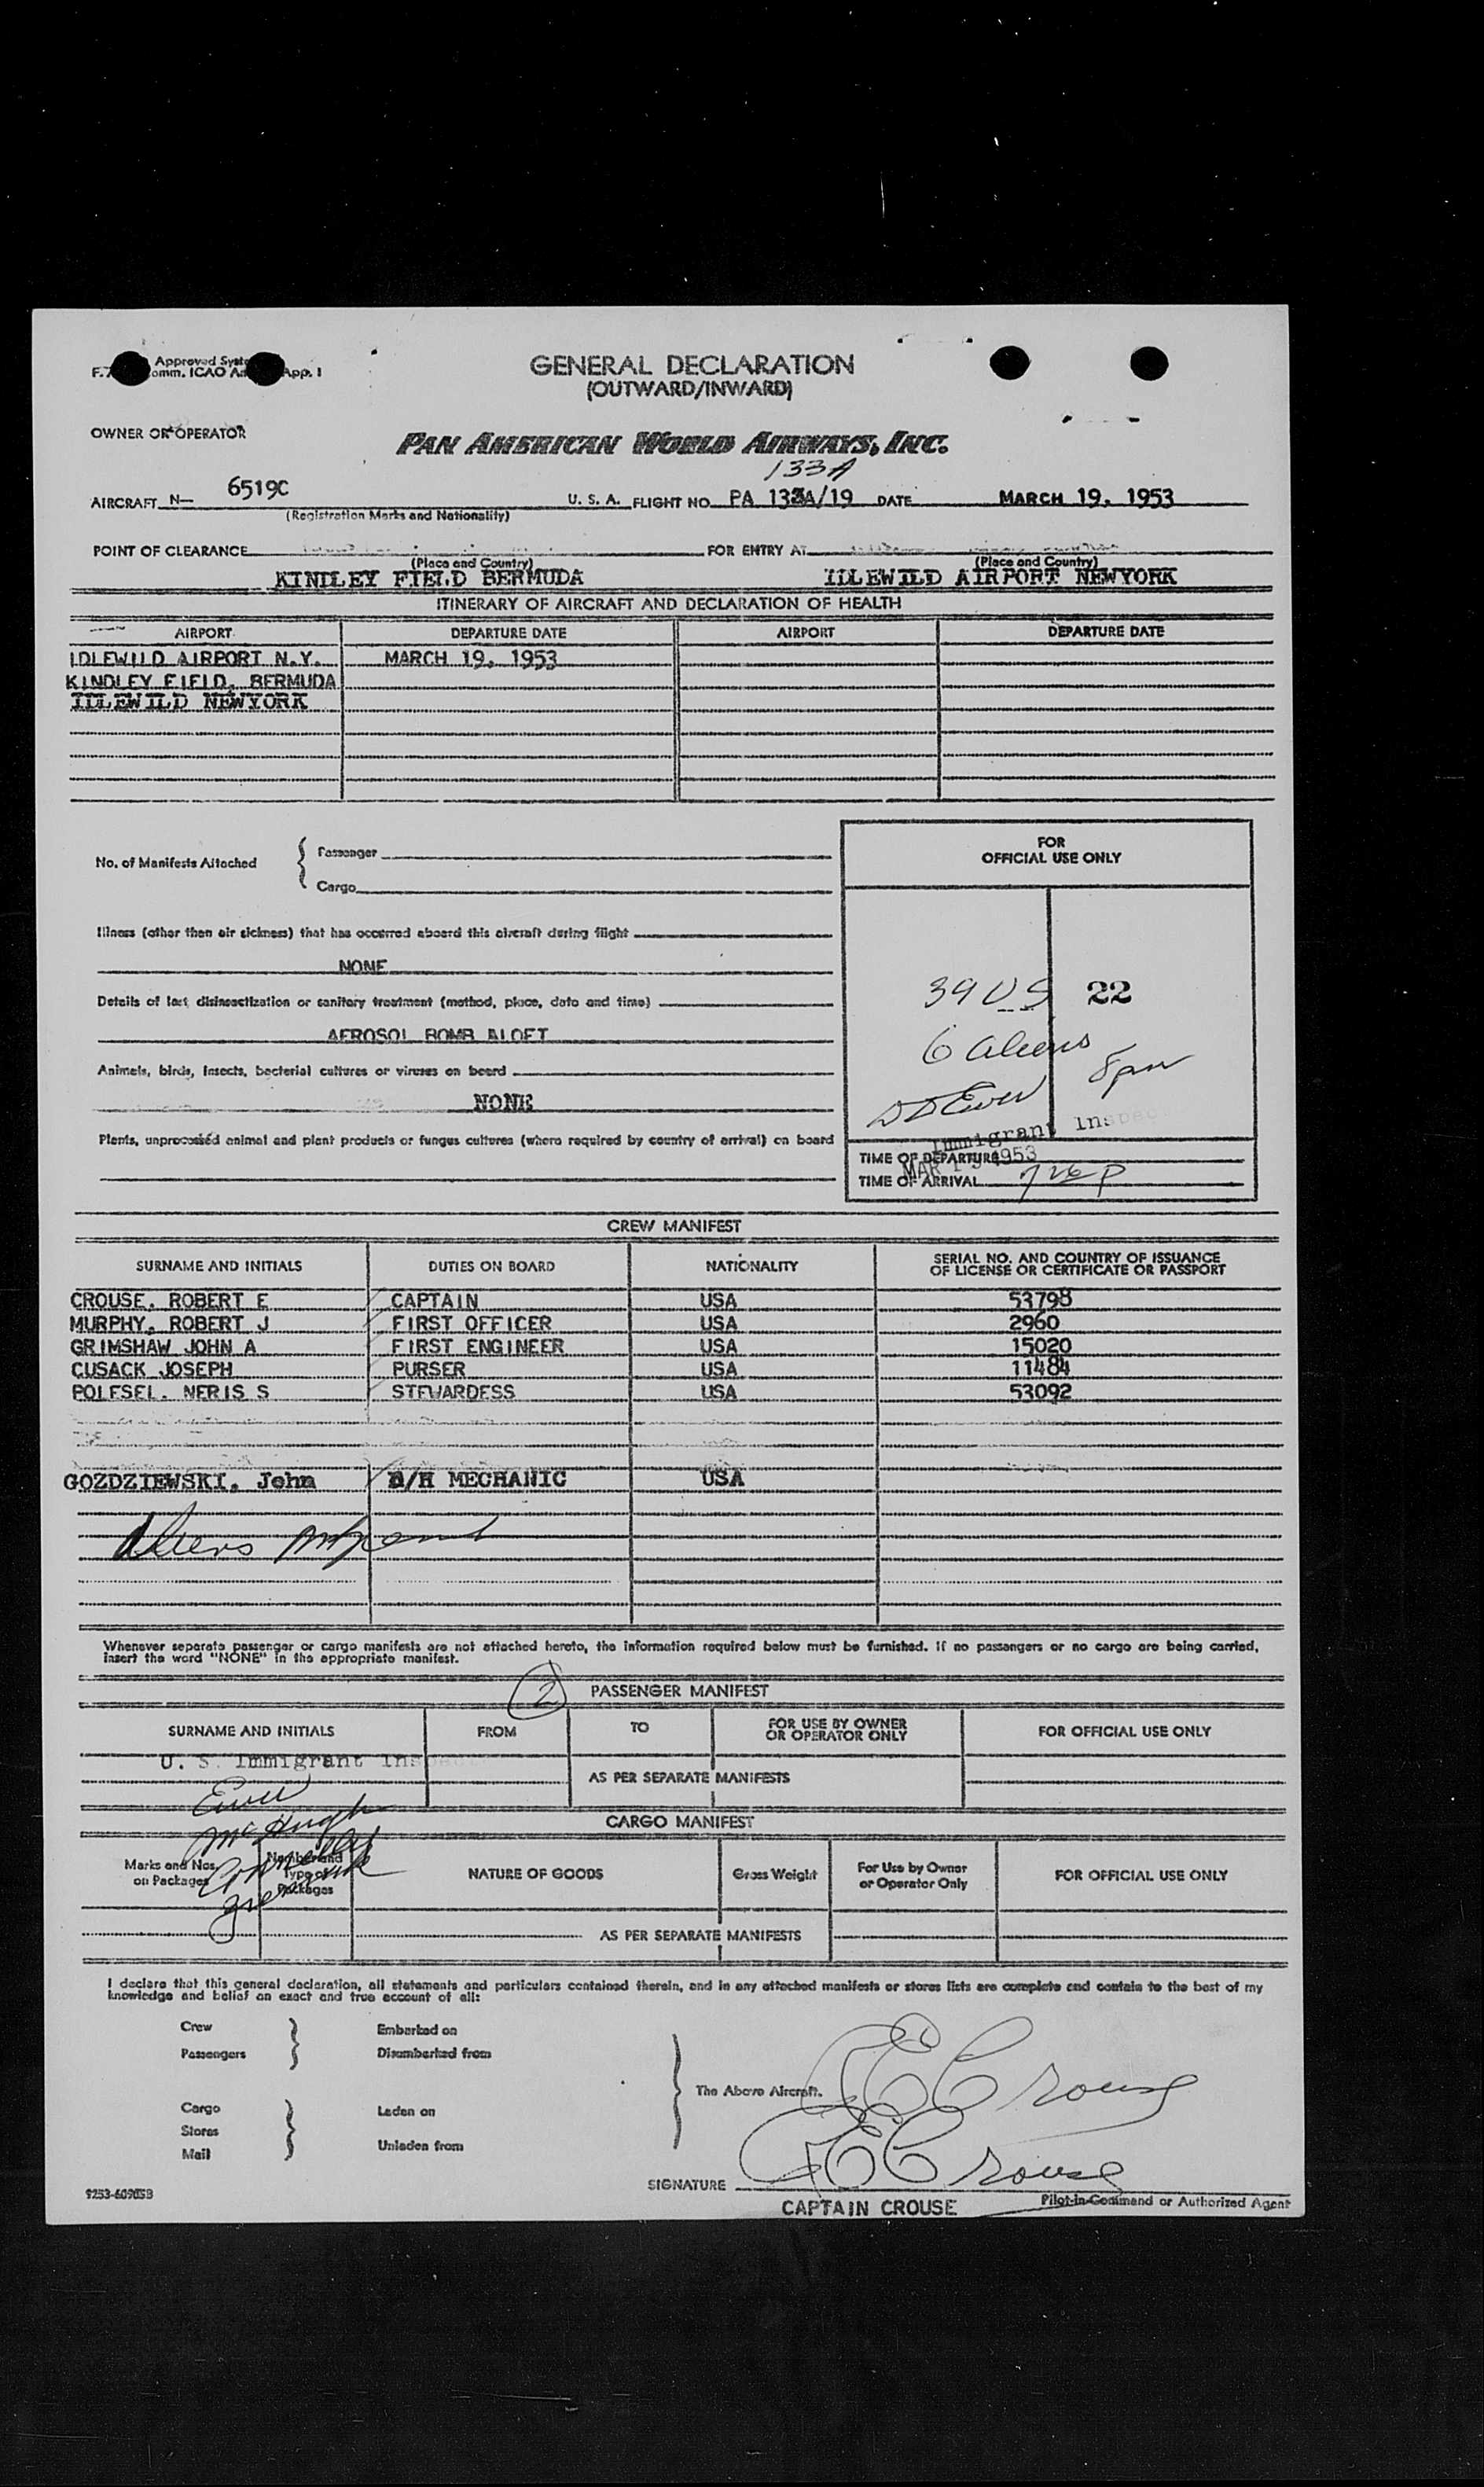 Approved Syste
F.7 omm. ICAO An App. I
GENERAL DECLARATION
(OUTWARD/INWARD)
OWNER OR OPERATOR
PAN AMERICAN WORLD AIRWAYS, INC.
133A
AIRCRAFT N— 6519C U. S. A. FLIGHT NO. PA 133A/19 DATE MARCH 19, 1953
(Registration Marks and Nationality)
POINT OF CLEARANCE FOR ENTRY AT
(Place and Country) (Place and Country)
KINDLEY FIELD BERMUDA IDLEWILD AIRPORT NEWYORK
ITINERARY OF AIRCRAFT AND DECLARATION OF HEALTH
AIRPORT DEPARTURE DATE AIRPORT DEPARTURE DATE
IDLEWILD AIRPORT N.Y. MARCH 19, 1953
KINDLEY FIELD, BERMUDA
IDLEWILD NEWYORK
FOR
OFFICIAL USE ONLY
No. of Manifests Attached { Passenger
Cargo
Illness (other than air sickness) that has occurred aboard this aircraft during flight
NONE
Details of last disinsectization or sanitary treatment (method, place, date and time)
AEROSOL BOMB ALOFT
Animals, birds, insects, bacterial cultures or viruses on board
NONE
Plants, unprocessed animal and plant products or fungus cultures (where required by country of arrival) on board
39 US 22
6 aliens
8pm
DD Ewer
Immigrant Inspec
TIME OF DEPARTURE
MAR 19 1953
TIME OF ARRIVAL 726 P
CREW MANIFEST
SURNAME AND INITIALS DUTIES ON BOARD NATIONALITY SERIAL NO. AND COUNTRY OF ISSUANCE
OF LICENSE OR CERTIFICATE OR PASSPORT
CROUSE, ROBERT E CAPTAIN USA 53798
MURPHY, ROBERT J FIRST OFFICER USA 2960
GRIMSHAW JOHN A FIRST ENGINEER USA 15020
CUSACK JOSEPH PURSER USA 11484
POLESEL, NERIS S STEWARDESS USA 53092
GOZDZIEWSKI, John D/H MECHANIC USA
Whenever separate passenger or cargo manifests are not attached hereto, the information required below must be furnished. If no passengers or no cargo are being carried,
insert the word "NONE" in the appropriate manifest.
2 PASSENGER MANIFEST
SURNAME AND INITIALS FROM TO FOR USE BY OWNER
OR OPERATOR ONLY FOR OFFICIAL USE ONLY
U. S. Immigrant Inspect
AS PER SEPARATE MANIFESTS
Ewer
McHugh
Connelly
CARGO MANIFEST
Marks and Nos.
on Packages Number and
Type of
Packages NATURE OF GOODS Gross Weight For Use by Owner
or Operator Only FOR OFFICIAL USE ONLY
AS PER SEPARATE MANIFESTS
I declare that this general declaration, all statements and particulars contained therein, and in any attached manifests or stores lists are complete and contain to the best of my
knowledge and belief an exact and true account of all:
Crew Embarked on
Passengers Disembarked from
The Above Aircraft.
Cargo Laden on
Stores
Mail Unladen from
RE Crouse
SIGNATURE RE Crouse
9253-60905B CAPTAIN CROUSE Pilot-in-Command or Authorized Agent